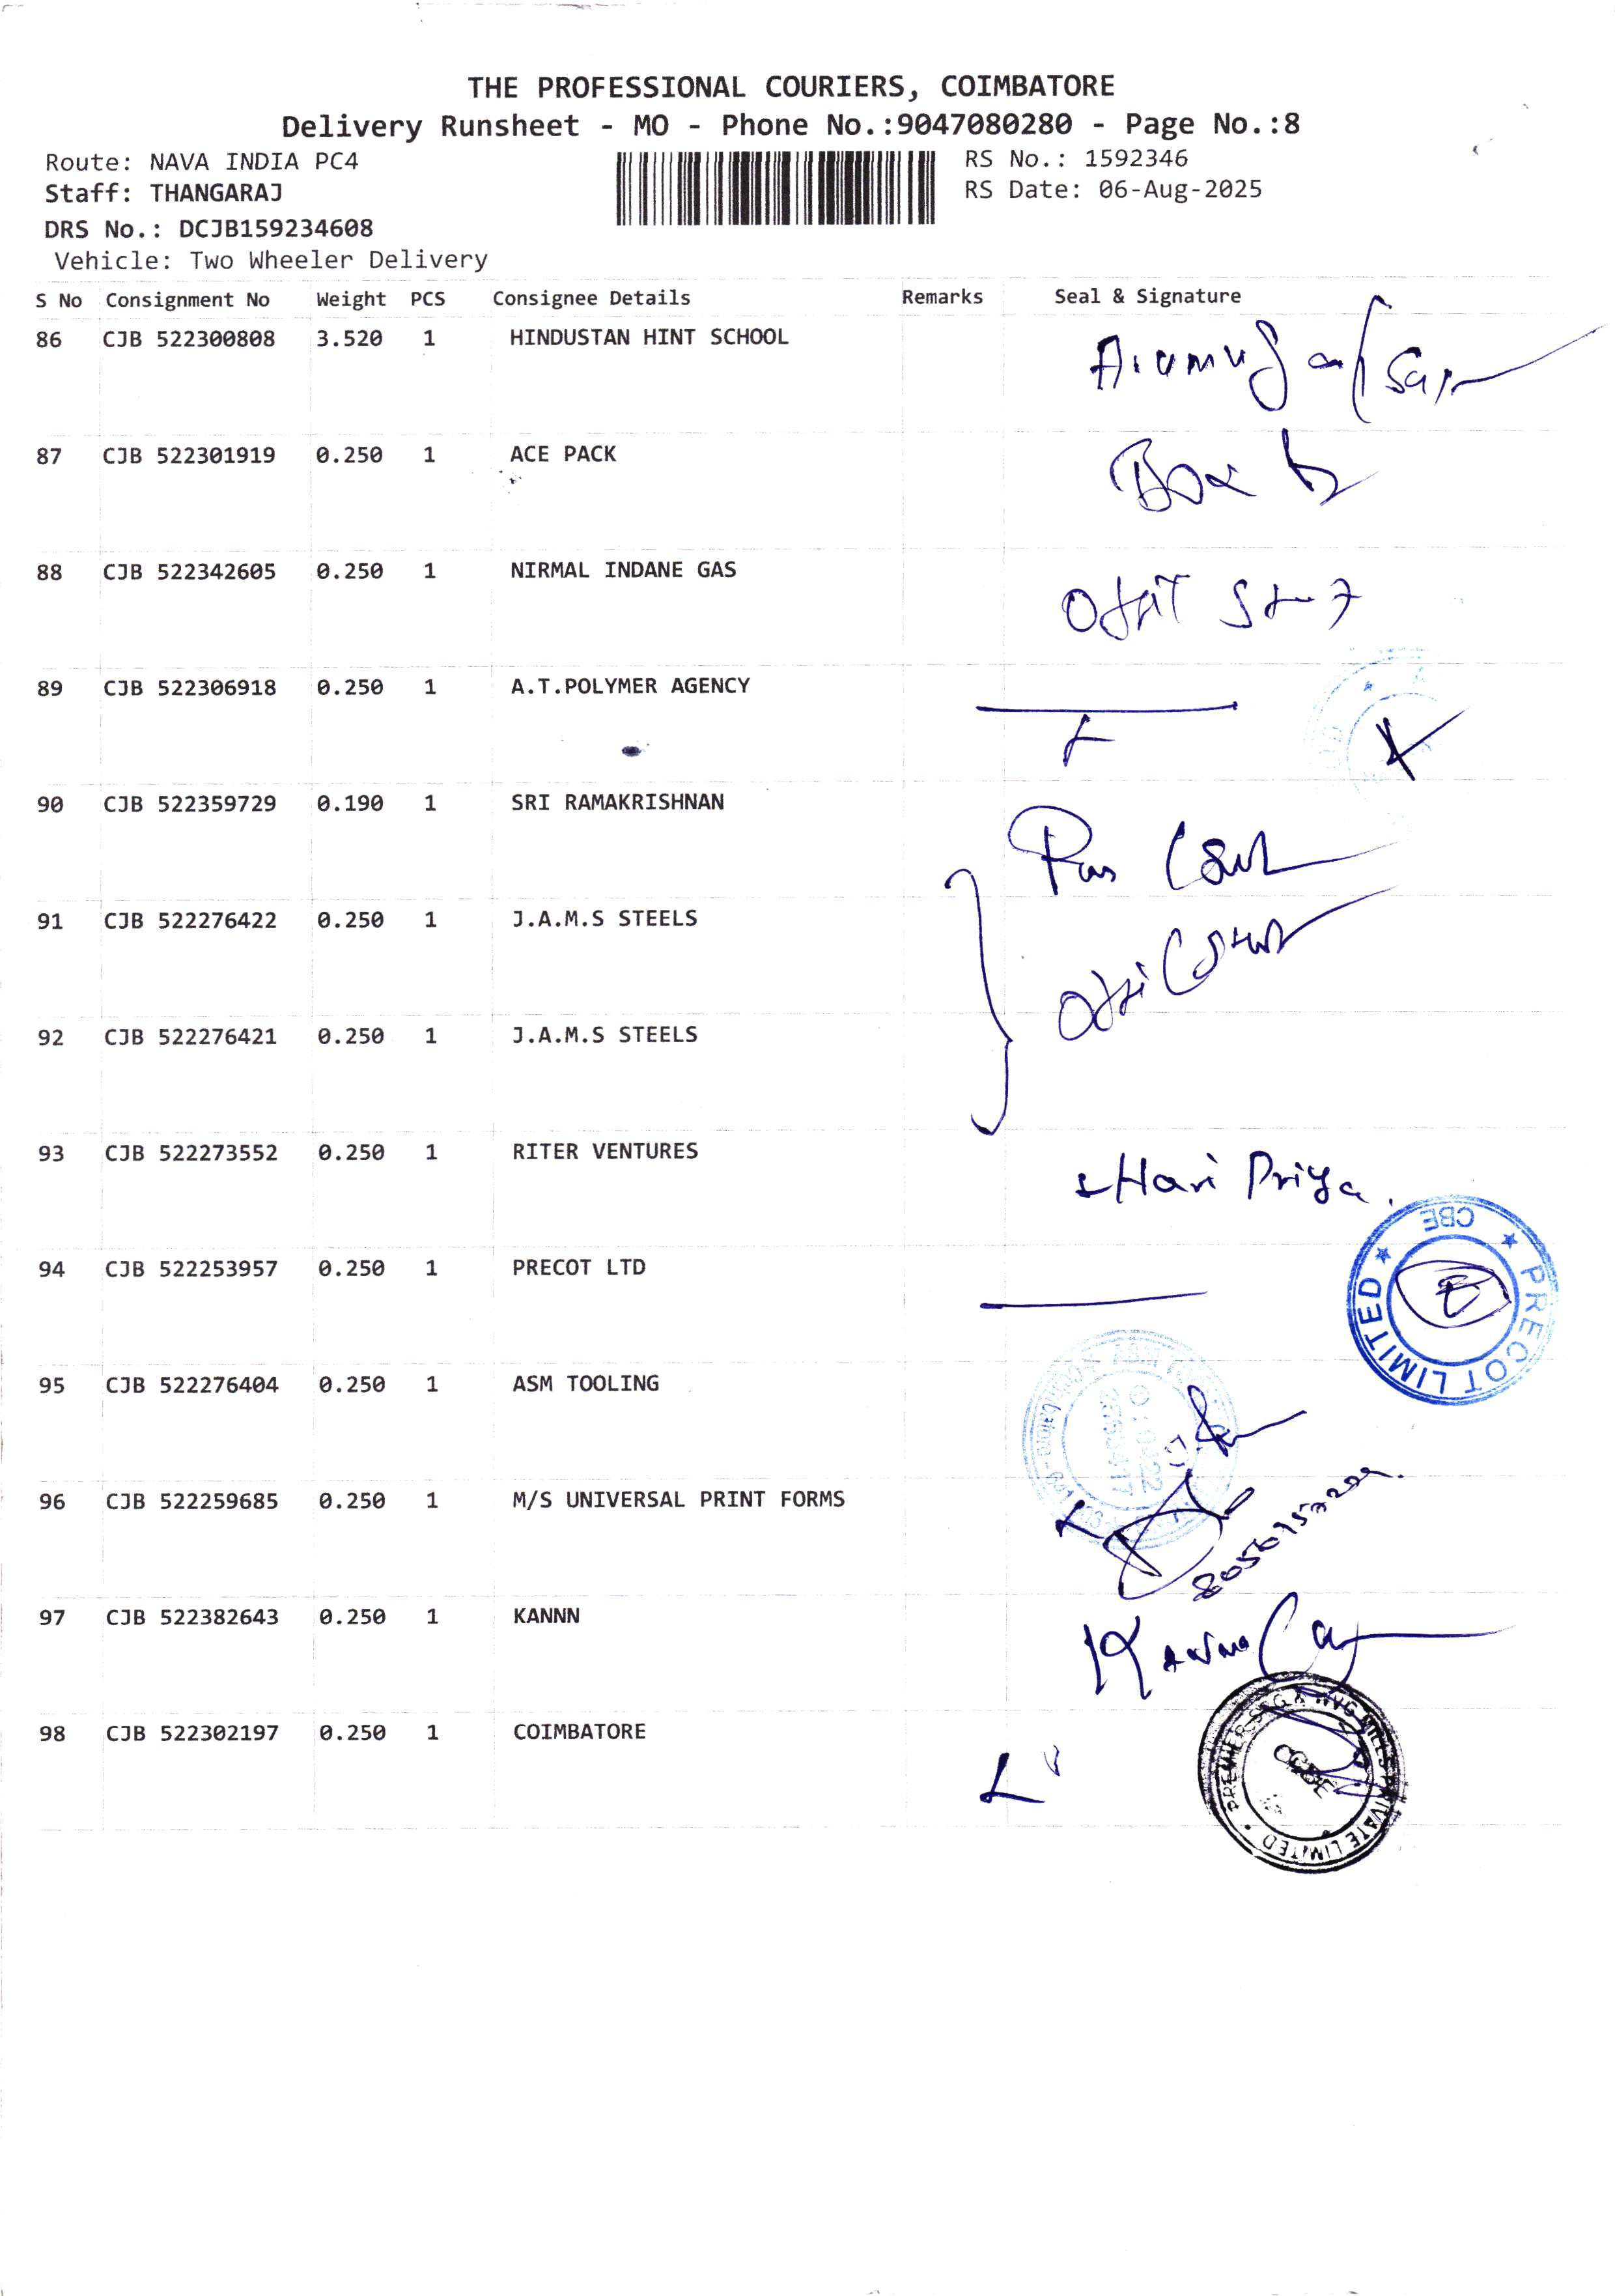 THE PROFESSIONAL COURIERS, COIMBATORE
Delivery Runsheet - MO - Phone No.:9047080280 - Page No.:8
Route: NAVA INDIA PC4
RS No.: 1592346
Staff: THANGARAJ
RS Date: 06-Aug-2025
DRS No.: DCJB159234608
Vehicle: Two Wheeler Delivery
S No Consignment No Weight PCS Consignee Details Remarks Seal & Signature
86 CJB 522300808 3.520 1 HINDUSTAN HINT SCHOOL
87 CJB 522301919 0.250 1 ACE PACK
88 CJB 522342605 0.250 1 NIRMAL INDANE GAS
89 CJB 522306918 0.250 1 A.T.POLYMER AGENCY
90 CJB 522359729 0.190 1 SRI RAMAKRISHNAN
91 CJB 522276422 0.250 1 J.A.M.S STEELS
92 CJB 522276421 0.250 1 J.A.M.S STEELS
93 CJB 522273552 0.250 1 RITER VENTURES
Hari Priya.
94 CJB 522253957 0.250 1 PRECOT LTD
PRECOT LIMITED ★ CBE ★
95 CJB 522276404 0.250 1 ASM TOOLING
96 CJB 522259685 0.250 1 M/S UNIVERSAL PRINT FORMS
97 CJB 522382643 0.250 1 KANNN
98 CJB 522302197 0.250 1 COIMBATORE
PREMIER SPG & WVG MILLS PRIVATE LIMITED